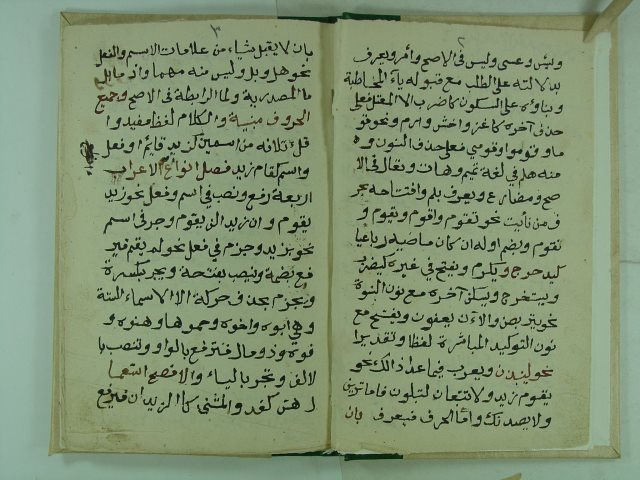 ٢
وبئس وعسى وليس في الاصح وامر ويعرف
بدلالته على الطلب مع قبوله ياء المخاطبة
وبناؤه على السكون كاضرب الا المعتل فعلى
حذف آخره كاغز واخش وارم ونحو قو
ما وقوموا وقومي فعلى حذف النون و
منه هلم في لغة تميم وهات وتعال في الا
صح ومضارع ويعرف بلم وافتتاحه بحر
ف من نأيت نحو نقوم واقوم ويقوم و
تقوم ويضم اوله ان كان ماضيه رباعيا
كيدحرج ويكرم ويفتح في غيره كيضرب
ويستخرج ويسكن آخره مع نون النسوة
نحو يتربصن والا ان يعفون ويفتح مع
نون التوكيد المباشرة لفظا وتقديرا
نحو لينبذن ويعرب فيما عدا ذلك نحو
يقوم زيد ولا تتبعان لتبلون فاما ترين
ولا يصدنك واما الحرف فيعرف بان
٣
بان لا يقبل شياء من علامات الاسم والفعل
نحو هل وبل وليس منه مهما واذ ما بل
ما المصدرية ولما الرابطة في الاصح وجميع
الحروف مبنية والكلام لفظ مفيد وا
قل ائتلافه من اسمين كزيد قائم او فعل
واسم كقام زيد فصل انواع الاعراب
اربعة رفع ونصب في اسم وفعل نحو زيد
يقوم وان زيدا لن يقوم وجر في اسم
نحو بزيد وجزم في فعل نحو لم يقم فير
فع بضمة وينصب بفتحة ويجر بكسرة
ويجزم بحذف حركة الا الاسماء الستة
وهي ابوه واخوه وحموها وهنوه و
فوه وذو مال فترفع بالواو وتنصب با
لالف وتجر بالياء والافصح استعما
ل هن كغد والمثنى كالزيدان فيرفع